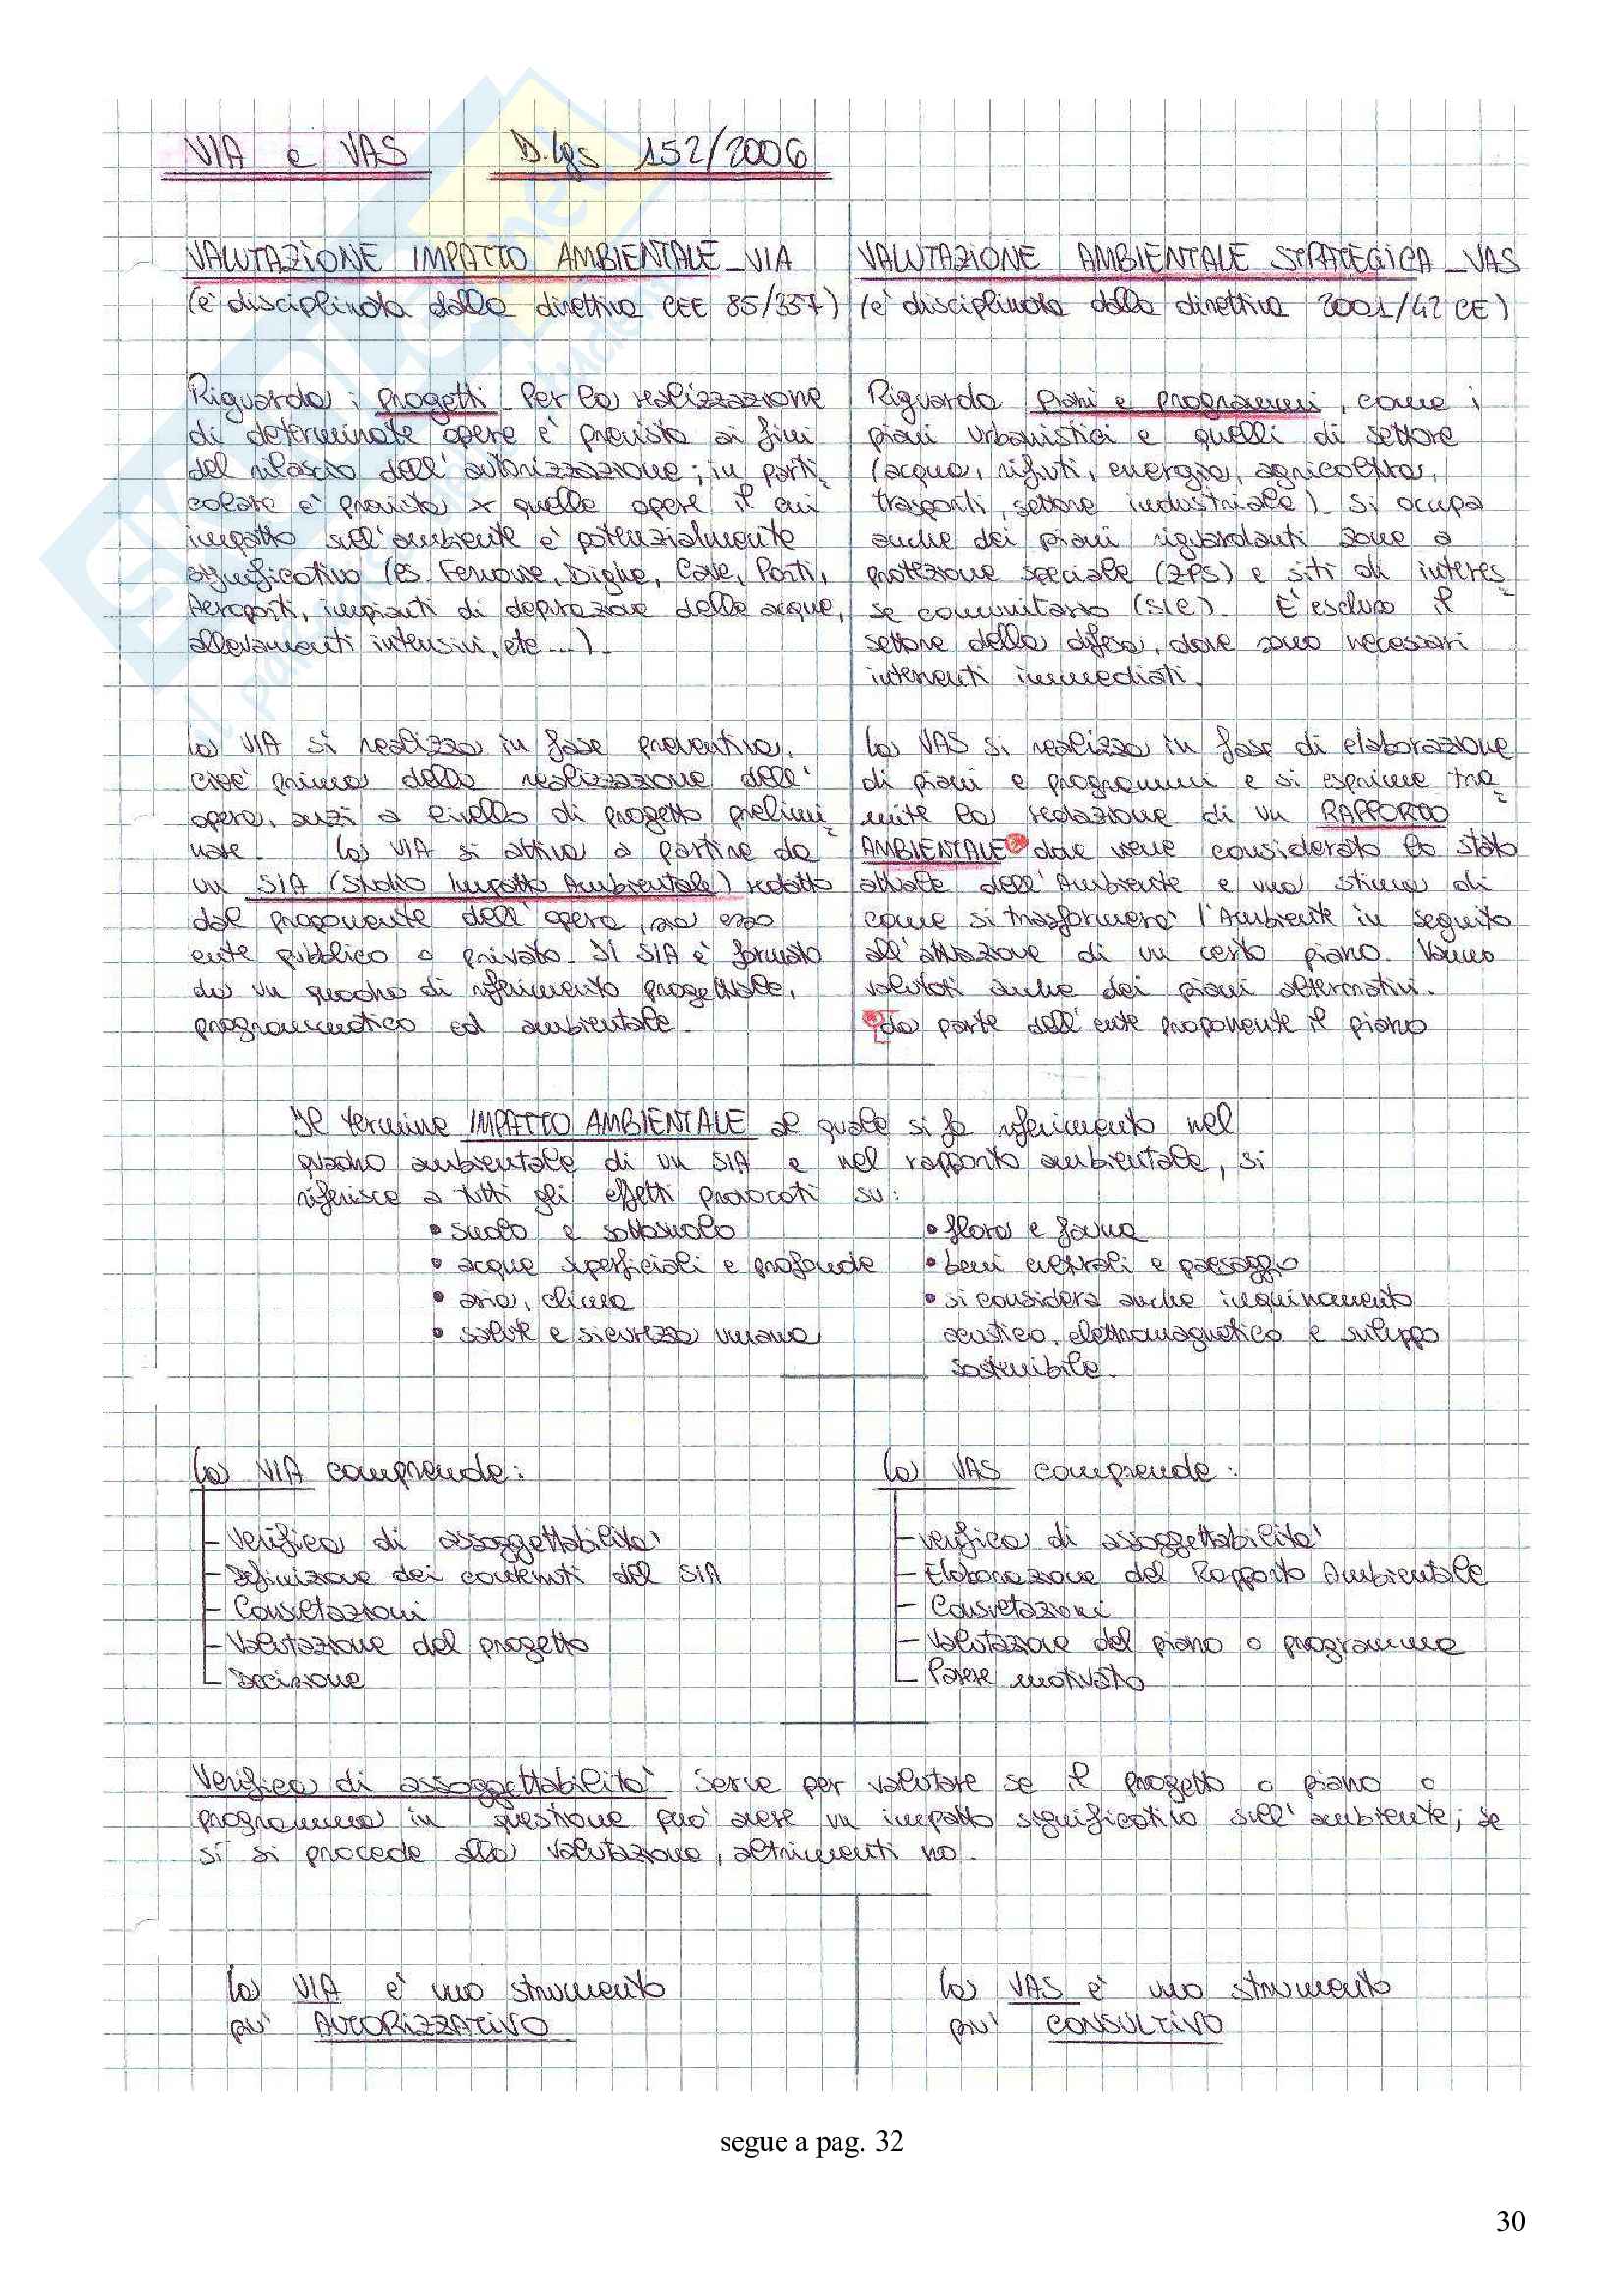 VIA e VAS D.lgs 152/2006
VALUTAZIONE IMPATTO AMBIENTALE_VIA
(e' disciplinata dalla direttiva CEE 85/337)
Riguarda i progetti. Per la realizzazione
di determinate opere e' prevista ai fini
del rilascio dell'autorizzazione; in parti
colare e' prevista x quelle opere il cui
impatto sull'ambiente e' potenzialmente
significativo (es. Ferrovie, Dighe, Cave, Porti,
Aeroporti, impianti di depurazione delle acque,
allevamenti intensivi, etc...).
La VIA si realizza in fase preventiva,
cioe' prima della realizzazione dell'
opera, anzi a livello di progetto prelimi
nare. La VIA si attiva a partire da
un SIA (Studio Impatto Ambientale) redatto
dal proponente dell'opera, sia esso
ente pubblico o privato. Il SIA e' formato
da un quadro di riferimento progettuale,
programmatico ed ambientale.
VALUTAZIONE AMBIENTALE STRATEGICA_VAS
(e' disciplinata dalla direttiva 2001/42 CE)
Riguarda piani e programmi, come i
piani urbanistici e quelli di settore
(acqua, rifiuti, energia, agricoltura,
trasporti, settore industriale). Si occupa
anche dei piani riguardanti zone a
protezione speciale (ZPS) e siti di interes
se comunitario (SIC). E' escluso il
settore della difesa, dove sono necessari
interventi immediati.
La VAS si realizza in fase di elaborazione
di piani e programmi e si esprime tra
mite la redazione di un RAPPORTO
AMBIENTALE dove viene considerato lo stato
attuale dell'Ambiente e una stima di
come si trasformera' l'Ambiente in seguito
all'attuazione di un certo piano. Vanno
valutati anche dei piani alternativi.
da parte dell'ente proponente il piano
Il termine IMPATTO AMBIENTALE al quale si fa riferimento nel
quadro ambientale di un SIA e nel rapporto ambientale, si
riferisce a tutti gli effetti provocati su:
• suolo e sottosuolo
• acque superficiali e profonde
• aria, clima
• salute e sicurezza umana
• flora e fauna
• beni culturali e paesaggio
• si considera anche inquinamento
acustico, elettromagnetico e sviluppo
sostenibile.
La VIA comprende:
- Verifica di assoggettabilita'
- Definizione dei contenuti del SIA
- Consultazioni
- Valutazione del progetto
- Decisione
La VAS comprende:
- Verifica di assoggettabilita'
- Elaborazione del Rapporto Ambientale
- Consultazioni
- Valutazione del piano o programma
- Parere motivato
Verifica di assoggettabilita' serve per valutare se il progetto o piano o
programma in questione puo' avere un impatto significativo sull'ambiente; se
si si procede alla valutazione, altrimenti no.
La VIA e' uno strumento
piu' AUTORIZZATIVO
La VAS e' uno strumento
piu' CONSULTIVO
segue a pag. 32
30